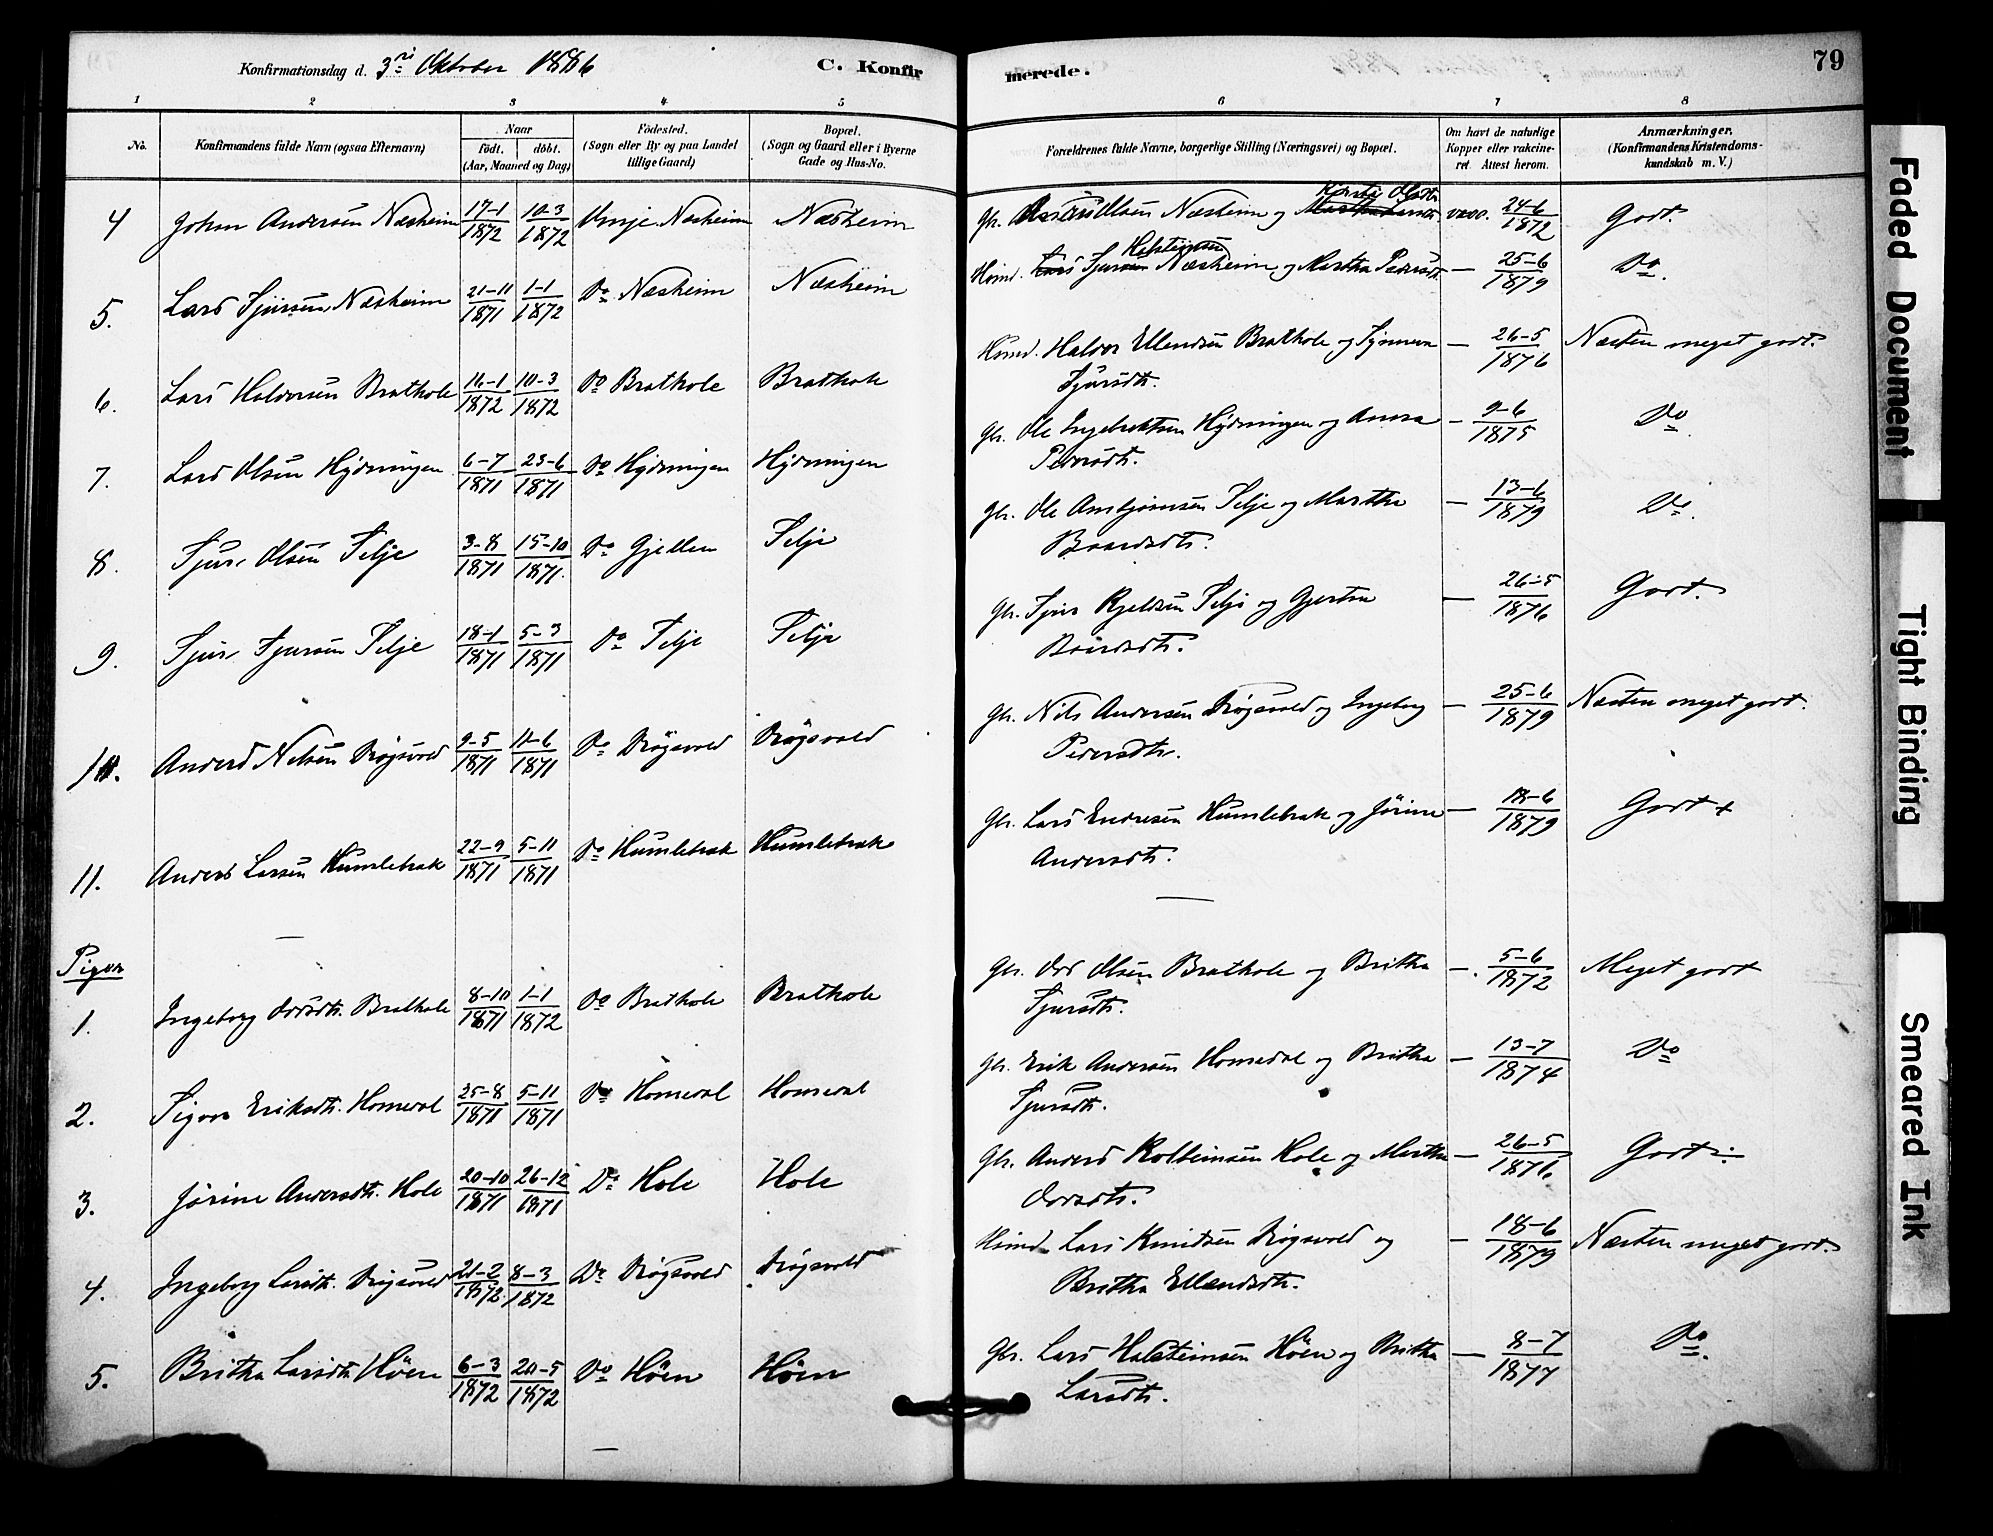 Konfirmationsdag d. 3die Oktober 1886
C. Konfirmerede.
79
1 2 3 4 5 6 7 8
No. Konfirmandens fulde Navn (ogsaa Efternavn) Naar født. døbt. (Aar, Maaned og Dag) Fødested. (Sogn eller By og paa Landet tillige Gaard) Bopæl. (Sogn og Gaard eller i Byerne Gade og Hus-No. Forældrenes fulde Navne, borgerlige Stilling (Næringsvei) og Bopæl. Om havt de naturlige Kopper eller vakcineret. Attest herom. Anmærkninger. (Konfirmandens Kristendomskundskab m. V.)
4 Johan Andersen Næsheim 17-1 1872 10-3 1872 Næsheim Næsheim Gbr. Olsen Næsheim og Kirsti Olsdtr. vacc. 24-6 1872 Godt.
5. Lars Sjursen Næsheim 21-11 1871 1-1 1872 Do Næsheim Næsheim Husmd. Sjur Helgesen Næsheim og Martha Pedersdtr. — 25-6 1879 Do.
6. Lars Haldorsen Brathole 16-1 1872 10-3 1872 Do Brathole Brathole Husmd. Haldor Ellendsen Brathole og Synneva — 26-5 1876 Næsten meget godt.
Sjursdtr.
7. Lars Olsen Hydningen 6-7 1871 23-6 1871 Do Hydningen Hydningen Gbr. Ole Ingebrektsen Hydningen og Anna — 9-6 1875 Do.
Pedersdtr.
8. Sjur Olsen Selje 3-8 1871 15-10 1871. Do Gjellen Selje Gbr. Ole Arnbjørnsen Selje og Martha — 13-6 1879 Do.
Baardsdtr.
9. Sjur Sjursen Selje 18-1 1871 5-3 1871 Do Selje Selje Gbr. Sjur Kjeldsen Selje og Gjertru — 26-5 1876 Godt.
Baardsdtr.
10. Anders Nilsen Døgsvold 9-5 1871 11-6 1871 Do Døgsvold Døgsvold Gbr. Nils Andersen Døgsvold og Ingeborg — 25-6 1879 Næsten meget godt.
Pedersdtr.
11. Anders Larsen Humlebræk 22-9 1871 5-11 1871 Do Humlebræk Humlebræk Gbr. Lars Endresen Humlebræk og Jørine — 18-6 1879 Godt +
Andersdtr.
Piger
1. Ingeborg Odsdtr. Brathole 8-10 1871 1-1 1872 Do Brathole Brathole Gbr. Odd Olsen Brathole og Britha — 5-6 1872 Meget godt
Sjursdtr.
2. Sigvor Eriksdtr. Homedal 25-8 1871 5-11 1871 Do Homedal Homedal Gbr. Erik Andersen Homedal og Britha — 13-7 1874 Do
Sjursdtr.
3. Jørine Andersdtr. Hole 20-10 1871 26-12 1871 Do Hole Hole Gbr. Anders Kolbeinsen Hole og Martha — 26-5 1876 Godt ÷
Odsdtr.
4. Ingeborg Larsdtr. Døgsvold 21-2 1872 8-3 1872 Do Døgsvold Døgsvold Husmd. Lars Knudsen Døgsvold og — 18-6 1879 Næsten meget godt.
Britha Ellendsdtr.
5. Britha Larsdtr. Höen 6-3 1872 20-5 1872 Do Höen Höen Gbr. Lars Halsteinsen Höen og Britha — 8-7 1877 Do.
Larsdtr.
Faded Document
Tight Binding
Smeared Ink